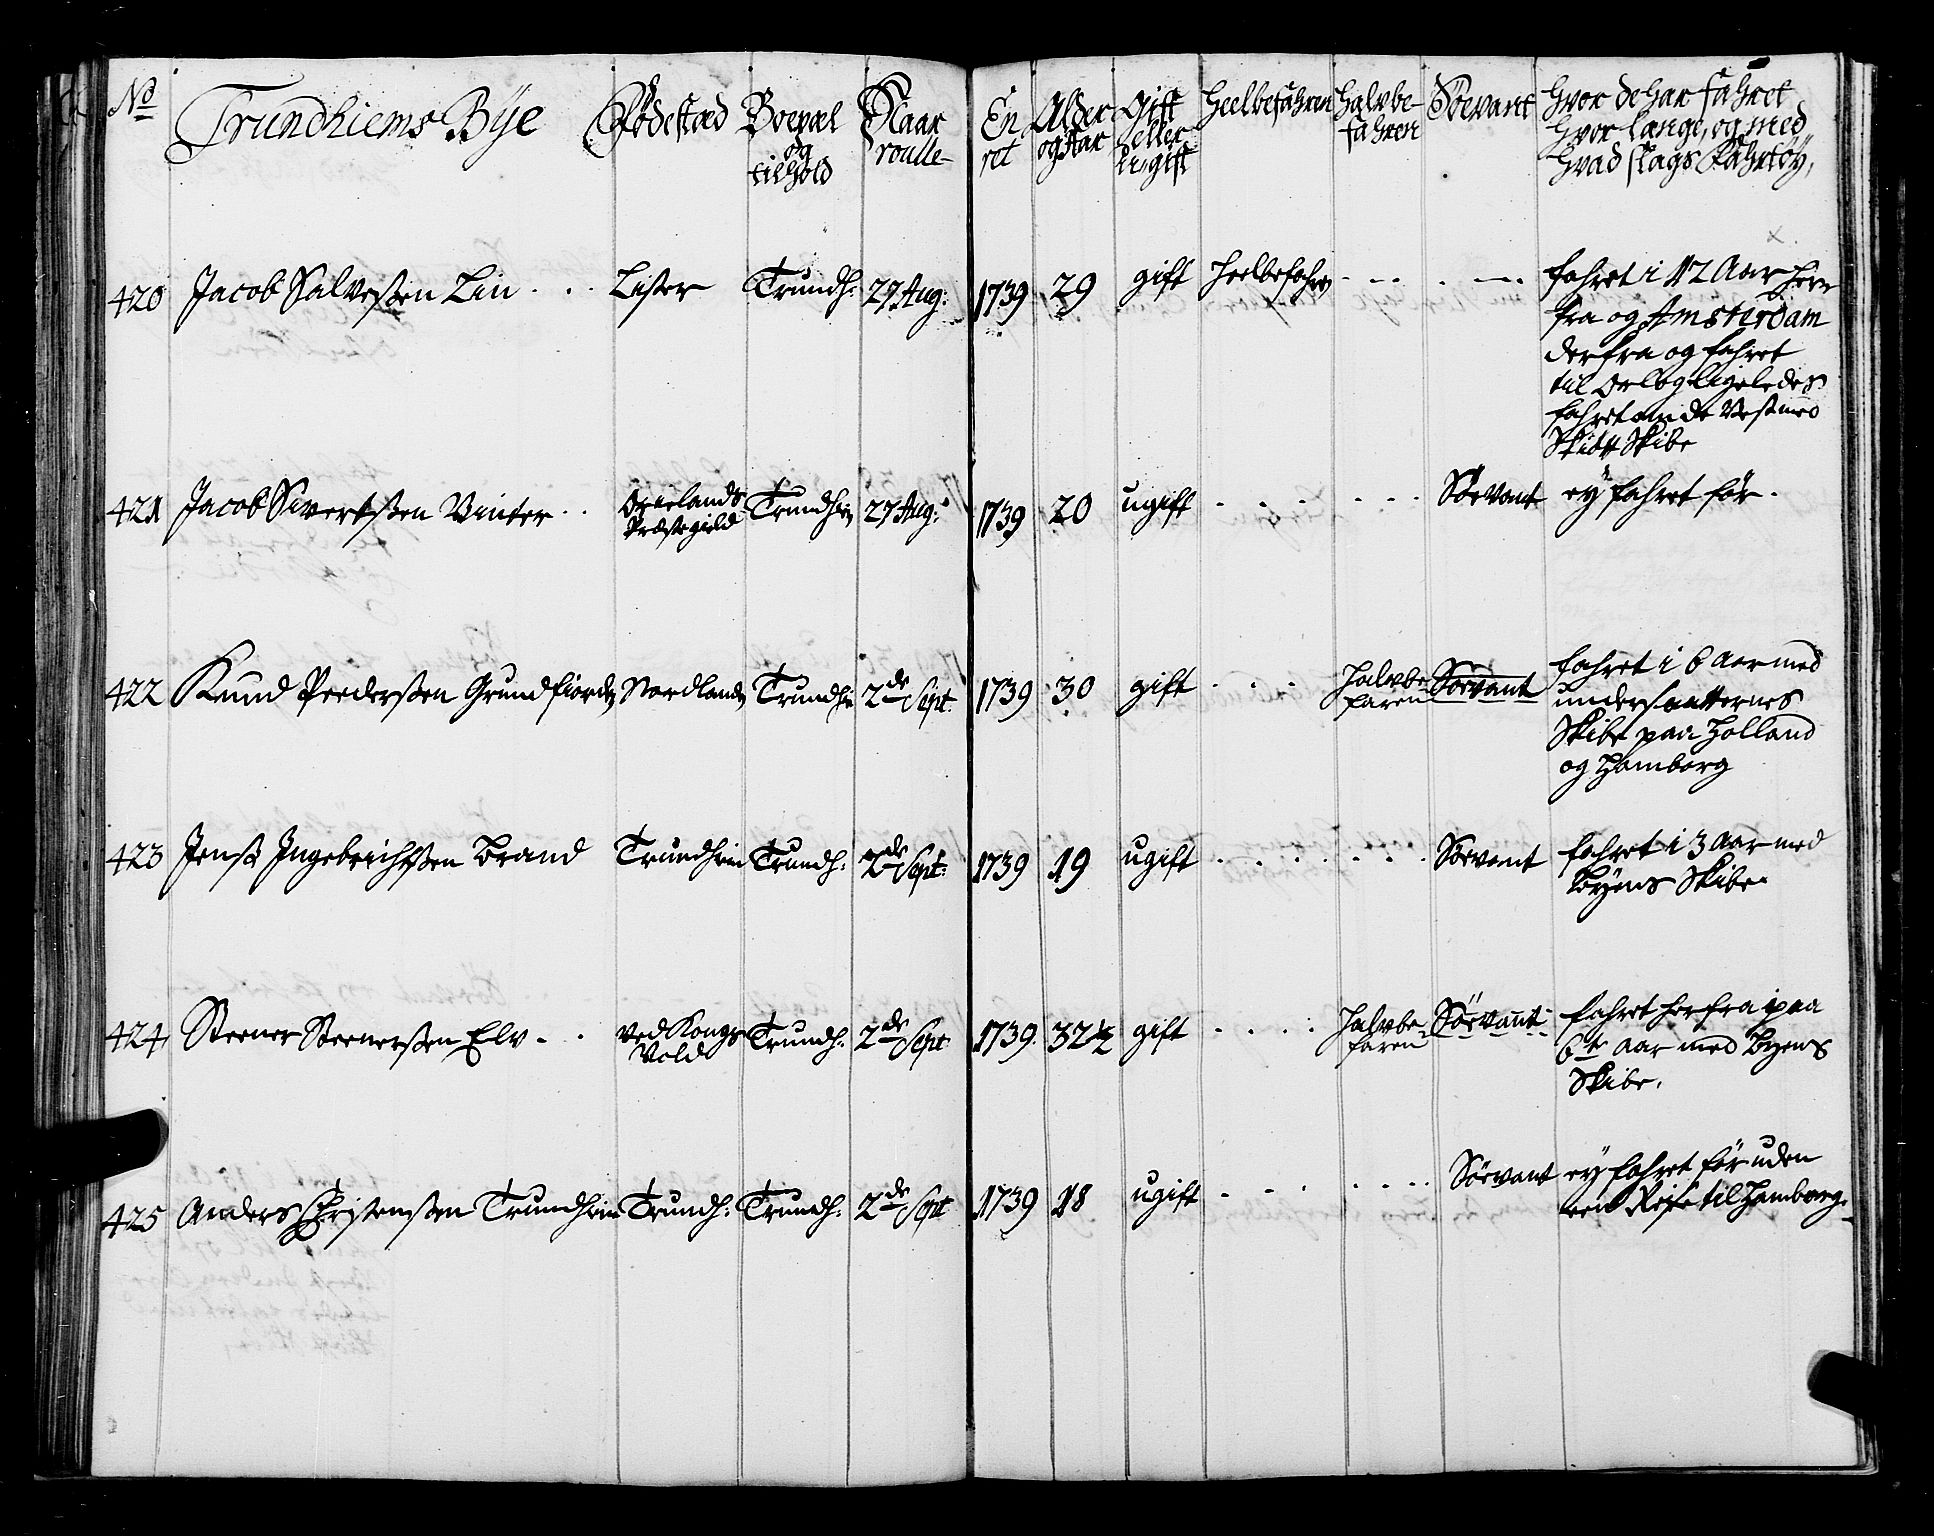 No Trundhiems Bÿe Fødestæd Boepæl og tilhold Naar roulle- En ret Alder og Aar Gift eller U-gift Heelbefahren Halvbe-fahren Söevant Hvor de har fahret
hvor længe, og med
hvad slags Fahrtöÿ,
420 Jacob Salvesßen Lin . . . Lister Trundh: 27 Aug: 1739 29 gift Heelbefahren - - - . - - . fahret i 12 Aar her
fra og Amsterdam
derfra og fahret
til Orlog ligeledes
fahret om de Vest med
Skibe
421 Jacob Sivertsßen Vinter . . Ørelands Præstegield Trundhiem 27 Aug: 1739 20 ugift . . . . . . . Söevant eÿ fahret för .
422 Knud Peedersßen Grundfiord Nordlands Trundhiem 2de Sept 1739 30 gift . . . Halvbe-faren Söevant fahret i 6 Aar med
undersaatternes
Skibe paa Holland
og Hamborg
423 Jenß Ingebrichtsßen Brand Trundhiem Trundh: 2de Sept: 1739 19 ugift . . . . . . . Söevant fahret i 3 Aar med
Bÿens Skibe
424 Steener Steenersßen Elv - . . ved Kongs Vold Trundh: 2de Sept 1739. 32 1/2 gift . . . . Halvbe-faren Söevant fahret herfra paa
6te Aar med Byens
Skibe.
425 Anders Christensßen Trundhiem Trundh: Trundh: 2de Sept 1739 18 ugift . - . . . . . . Söevant eÿ fahret för uden
een Reise til Hamborg.